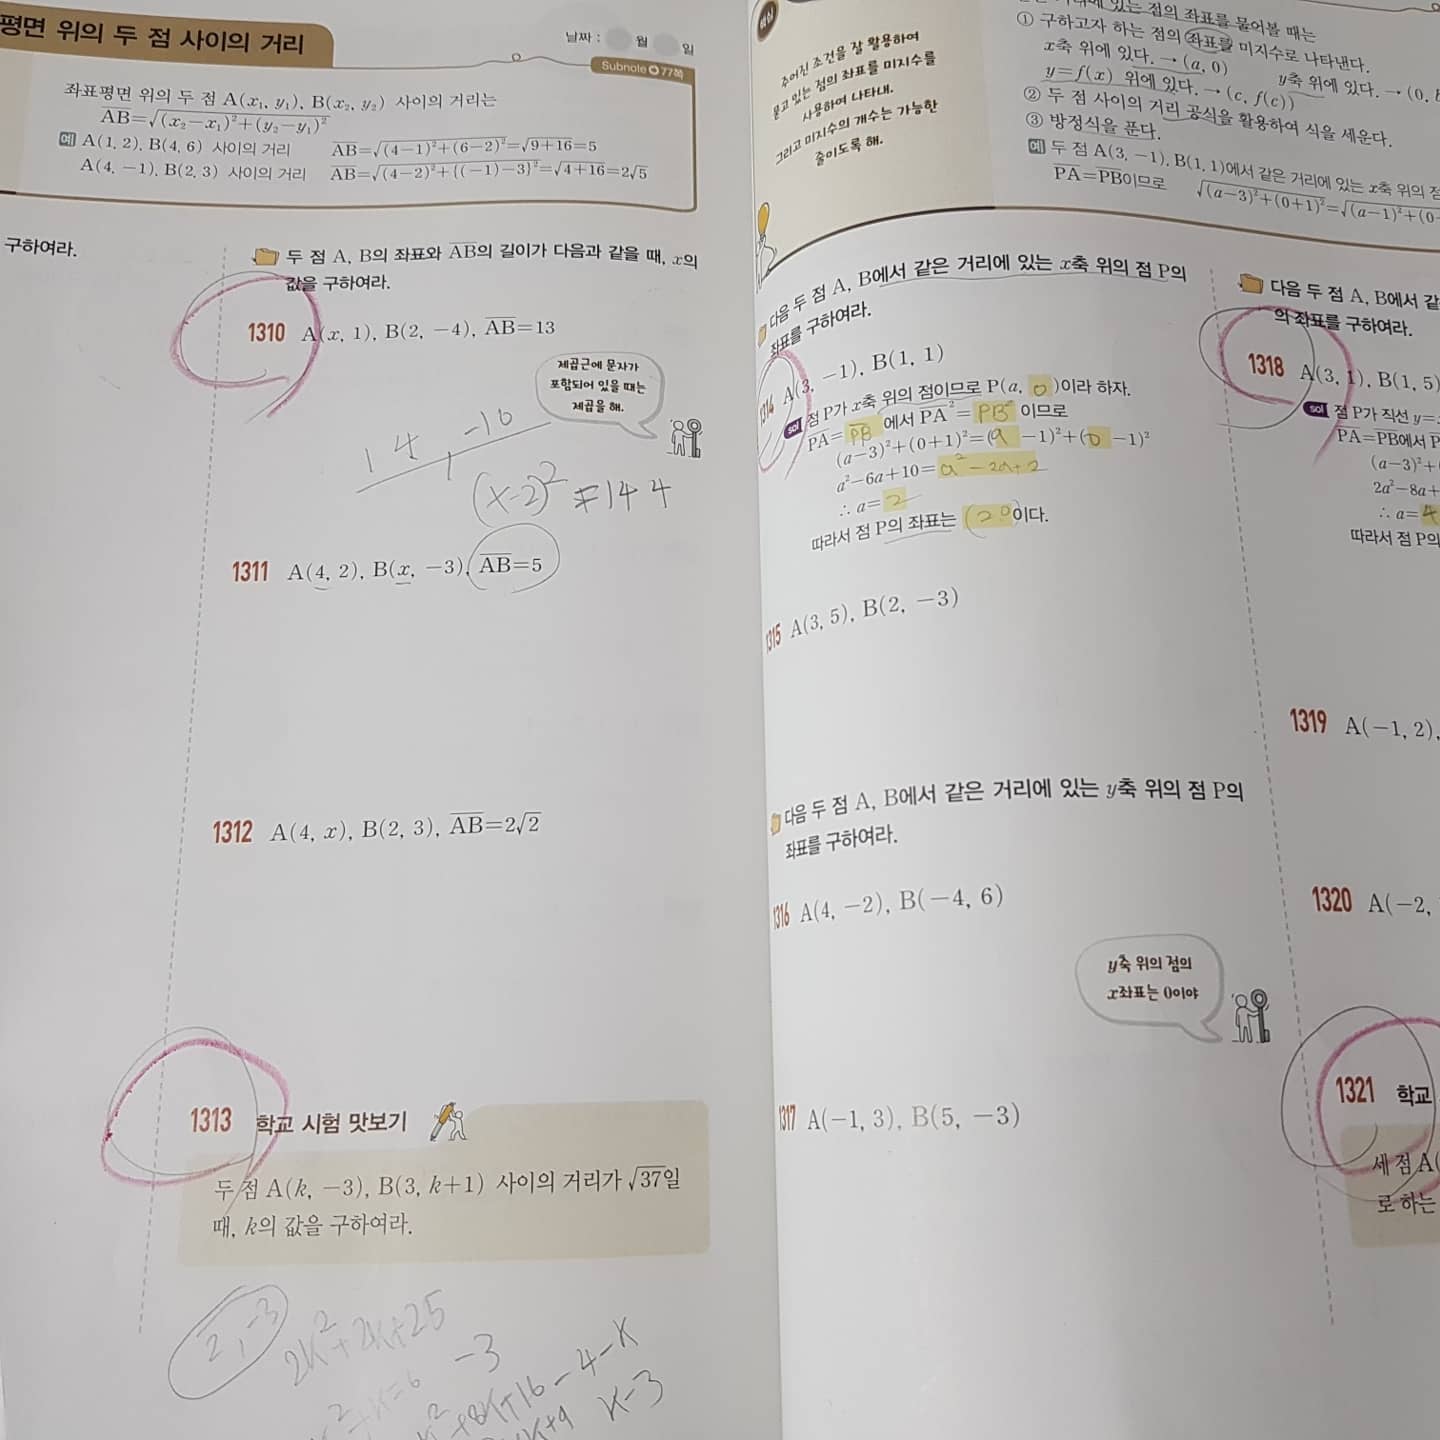 평면 위의 두 점 사이의 거리
날짜 : 월 일
Subnote 77쪽
좌표평면 위의 두 점 A(x₁, y₁), B(x₂, y₂) 사이의 거리는
AB=√(x₂−x₁)²+(y₂−y₁)²
예 A(1, 2), B(4, 6) 사이의 거리 AB=√(4−1)²+(6−2)²=√9+16=5
A(4, −1), B(2, 3) 사이의 거리 AB=√(4−2)²+{(−1)−3}²=√4+16=2√5
구하여라.
두 점 A, B의 좌표와 AB의 길이가 다음과 같을 때, x의
값을 구하여라.
1310 A(x, 1), B(2, −4), AB=13
제곱근에 문자가
포함되어 있을 때는
제곱을 해.
14 −10
(x-2)² = 144
1311 A(4, 2), B(x, −3), AB=5
1312 A(4, x), B(2, 3), AB=2√2
1313 학교 시험 맛보기
두 점 A(k, −3), B(3, k+1) 사이의 거리가 √37일
때, k의 값을 구하여라.
2, -3
2k²+2k+25
-3
+8k+16-4-k
k-3
주어진 조건을 잘 활용하여
묻고 있는 점의 좌표를 미지수를
사용하여 나타내.
그리고 미지수의 개수는 가능한
줄이도록 해.
거리에 있는 점의 좌표를 물어볼 때는
① 구하고자 하는 점의 좌표를 미지수로 나타낸다.
x축 위에 있다. → (a, 0) y축 위에 있다. → (0,
y=f(x) 위에 있다. → (c, f(c))
② 두 점 사이의 거리 공식을 활용하여 식을 세운다.
③ 방정식을 푼다.
예 두 점 A(3, −1), B(1, 1)에서 같은 거리에 있는 x축 위의 점
PA=PB이므로 √(a−3)²+(0+1)²=√(a−1)²+(0
다음 두 점 A, B에서 같은 거리에 있는 x축 위의 점 P의
좌표를 구하여라.
1314 A(3, −1), B(1, 1)
sol 점 P가 x축 위의 점이므로 P(a, 0)이라 하자.
PA=PB에서 PA²=PB²이므로
(a−3)²+(0+1)²=(a−1)²+(0−1)²
a²−6a+10=a²−2a+2
∴ a=2
따라서 점 P의 좌표는 (2 0)이다.
1315 A(3, 5), B(2, −3)
다음 두 점 A, B에서 같은 거리에 있는 y축 위의 점 P의
좌표를 구하여라.
1316 A(4, −2), B(−4, 6)
y축 위의 점의
x좌표는 0이야
1317 A(−1, 3), B(5, −3)
다음 두 점 A, B에서 같
의 좌표를 구하여라.
1318 A(3, 1), B(1, 5)
sol 점 P가 직선 y=
PA=PB에서 P
(a−3)²+
2a²−8a+
∴ a=4
따라서 점 P의
1319 A(−1, 2),
1320 A(−2,
1321 학교
세 점 A(
로 하는